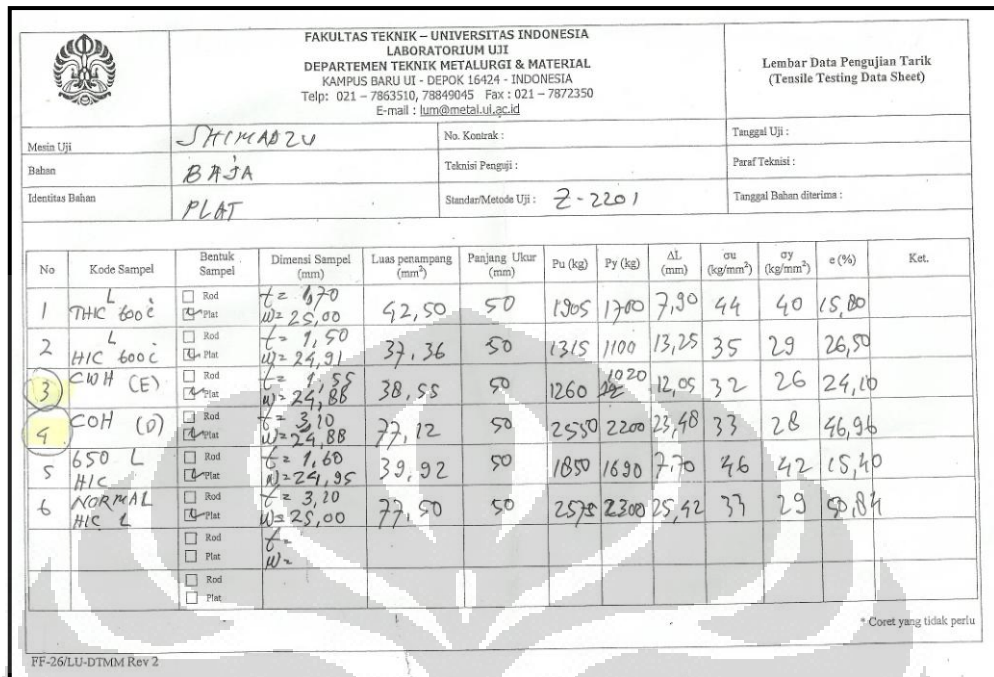 FAKULTAS TEKNIK – UNIVERSITAS INDONESIA
LABORATORIUM UJI
DEPARTEMEN TEKNIK METALURGI & MATERIAL
KAMPUS BARU UI - DEPOK 16424 - INDONESIA
Telp: 021 – 7863510, 78849045 Fax : 021 – 7872350
E-mail : lum@metal.ui.ac.id
Lembar Data Pengujian Tarik
(Tensile Testing Data Sheet)
Mesin Uji SHIMADZU No. Kontrak : Tanggal Uji :
Bahan BAJA Teknisi Penguji : Paraf Teknisi :
Identitas Bahan PLAT Standar/Metode Uji : Z-2201 Tanggal Bahan diterima :
No Kode Sampel Bentuk Sampel Dimensi Sampel (mm) Luas penampang (mm²) Panjang Ukur (mm) Pu (kg) Py (kg) ΔL (mm) σu (kg/mm²) σy (kg/mm²) e (%) Ket.
1 L THIC 600 c Rod Plat t = 1,70 W = 25,00 42,50 50 1905 1700 7,90 44 40 15,80
2 L HIC 600 c Rod Plat t = 1,50 W = 24,91 37,36 50 1315 1100 13,25 35 29 26,50
3 (E) Rod Plat t = 1,55 W = 24,88 38,55 50 1260 1020 12,05 32 26 24,10
4 COH (D) Rod Plat t = 3,10 W = 24,88 77,12 50 2550 2200 23,48 33 28 46,96
5 650 L HIC Rod Plat t = 1,60 W = 24,95 39,92 50 1850 1690 7,70 46 42 15,40
6 NORMAL HIC L Rod Plat t = 3,10 W = 25,00 77,50 50 2575 2300 25,42 33 29 50,84
Rod Plat t = W =
Rod Plat
* Coret yang tidak perlu
FF-26/LU-DTMM Rev 2